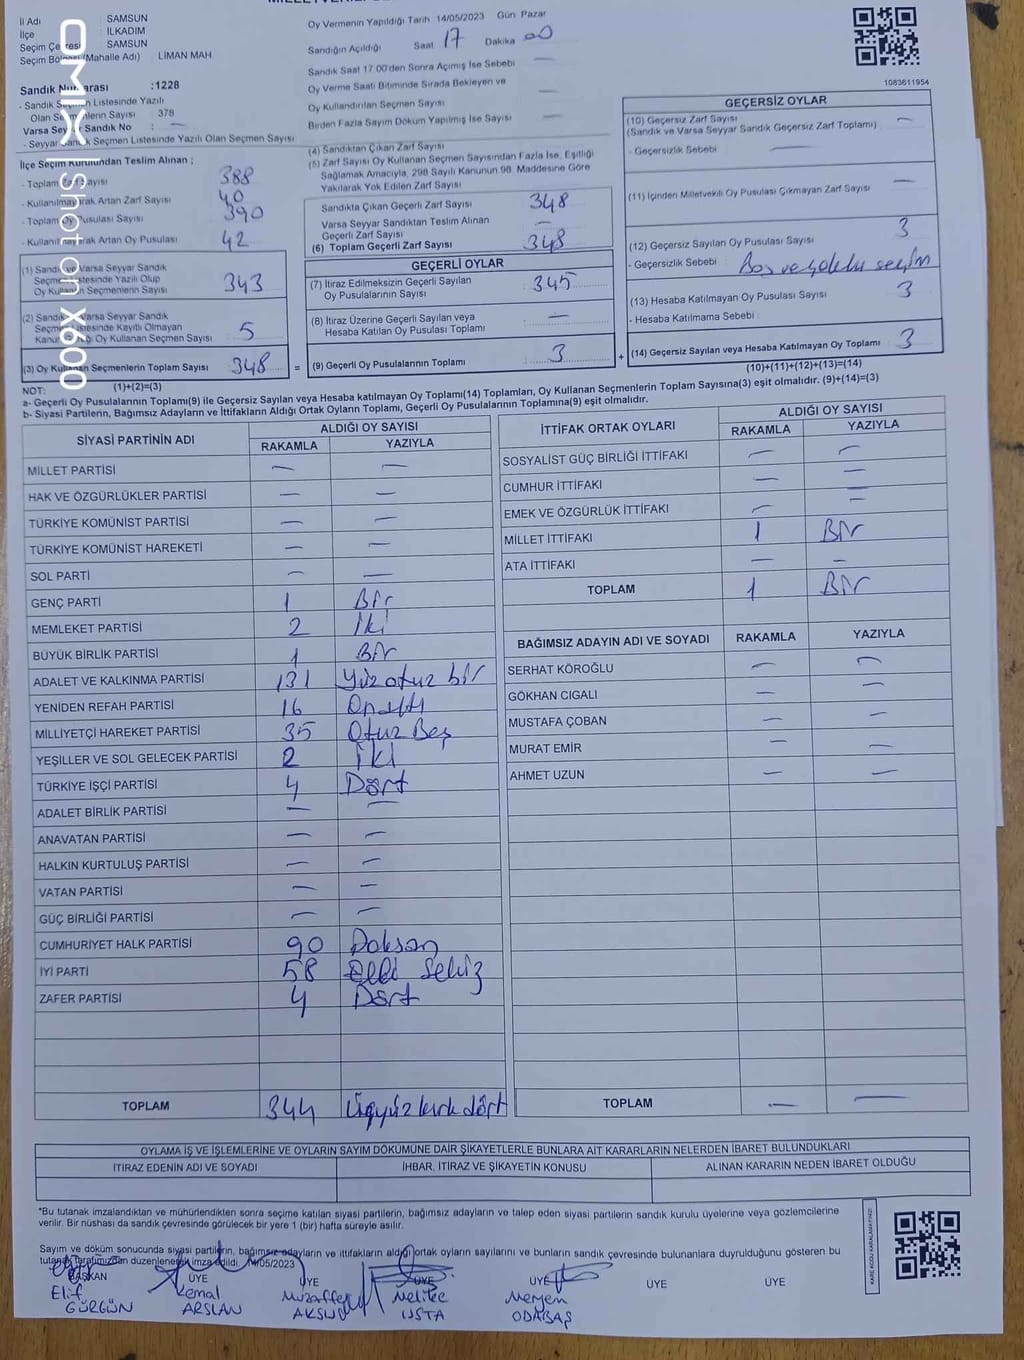 İl Adı : SAMSUN
İlçe : İLKADIM
Seçim Çevresi SAMSUN
Seçim Bölgesi (Mahalle Adı) LİMAN MAH
Sandık Numarası :1228
- Sandık Seçmen Listesinde Yazılı
Olan Seçmenlerin Sayısı 378
Varsa Seyyar Sandık No : —
- Seyyar Sandık Seçmen Listesinde Yazılı Olan Seçmen Sayısı
İlçe Seçim Kurulundan Teslim Alınan ;
- Toplam Zarf Sayısı 388
- Kullanılmayarak Artan Zarf Sayısı 40
- Toplam Oy Pusulası Sayısı 390
- Kullanılmayarak Artan Oy Pusulası 42
(1) Sandık ve Varsa Seyyar Sandık
Seçmen Listesinde Yazılı Olup
Oy Kullanan Seçmenlerin Sayısı 343
(2) Sandık ve Varsa Seyyar Sandık
Seçmen Listesinde Kayıtlı Olmayan
Kanun Gereği Oy Kullanan Seçmen Sayısı 5
(3) Oy Kullanan Seçmenlerin Toplam Sayısı 348 =
Oy Vermenin Yapıldığı Tarih 14/05/2023 Gün Pazar
Sandığın Açıldığı Saat 17 Dakika 00
Sandık Saat 17.00'den Sonra Açımış İse Sebebi —
Oy Verme Saati Bitiminde Sırada Bekleyen ve
Oy Kullandırılan Seçmen Sayısı —
Birden Fazla Sayım Döküm Yapılmış İse Sayısı —
(4) Sandıktan Çıkan Zarf Sayısı
(5) Zarf Sayısı Oy Kullanan Seçmen Sayısından Fazla İse, Eşitliği
Sağlamak Amacıyla, 298 Sayılı Kanunun 98. Maddesine Göre
Yakılarak Yok Edilen Zarf Sayısı
Sandıkta Çıkan Geçerli Zarf Sayısı 348
Varsa Seyyar Sandıktan Teslim Alınan
Geçerli Zarf Sayısı —
(6) Toplam Geçerli Zarf Sayısı 348
GEÇERLİ OYLAR
(7) İtiraz Edilmeksizin Geçerli Sayılan
Oy Pusulalarının Sayısı 345
(8) İtiraz Üzerine Geçerli Sayılan veya
Hesaba Katılan Oy Pusulası Toplamı —
(9) Geçerli Oy Pusulalarının Toplamı 3 +
1083611954
GEÇERSİZ OYLAR
(10) Geçersiz Zarf Sayısı —
(Sandık ve Varsa Seyyar Sandık Geçersiz Zarf Toplamı)
- Geçersizlik Sebebi —
(11) İçinden Milletvekili Oy Pusulası Çıkmayan Zarf Sayısı —
(12) Geçersiz Sayılan Oy Pusulası Sayısı 3
- Geçersizlik Sebebi Boş ve çoklu seçim
(13) Hesaba Katılmayan Oy Pusulası Sayısı 3
- Hesaba Katılmama Sebebi :
(14) Geçersiz Sayılan veya Hesaba Katılmayan Oy Toplamı 3
NOT: (1)+(2)=(3) (10)+(11)+(12)+(13)=(14)
a- Geçerli Oy Pusulalarının Toplamı(9) ile Geçersiz Sayılan veya Hesaba katılmayan Oy Toplamı(14) Toplamları, Oy Kullanan Seçmenlerin Toplam Sayısına(3) eşit olmalıdır. (9)+(14)=(3)
b- Siyasi Partilerin, Bağımsız Adayların ve İttifakların Aldığı Ortak Oyların Toplamı, Geçerli Oy Pusulalarının Toplamına(9) eşit olmalıdır.
SİYASİ PARTİNİN ADI ALDIĞI OY SAYISI
RAKAMLA YAZIYLA
MİLLET PARTİSİ — —
HAK VE ÖZGÜRLÜKLER PARTİSİ — —
TÜRKİYE KOMÜNİST PARTİSİ — —
TÜRKİYE KOMÜNİST HAREKETİ — —
SOL PARTİ — —
GENÇ PARTİ 1 Bir
MEMLEKET PARTİSİ 2 İki
BÜYÜK BİRLİK PARTİSİ 1 Bir
ADALET VE KALKINMA PARTİSİ 131 Yüz otuz bir
YENİDEN REFAH PARTİSİ 16 Onaltı
MİLLİYETÇİ HAREKET PARTİSİ 35 Otuz Beş
YEŞİLLER VE SOL GELECEK PARTİSİ 2 İki
TÜRKİYE İŞÇİ PARTİSİ 4 Dört
ADALET BİRLİK PARTİSİ — —
ANAVATAN PARTİSİ — —
HALKIN KURTULUŞ PARTİSİ — —
VATAN PARTİSİ — —
GÜÇ BİRLİĞİ PARTİSİ — —
CUMHURİYET HALK PARTİSİ 90 Doksan
İYİ PARTİ 58 Elli Sekiz
ZAFER PARTİSİ 4 Dört
TOPLAM 344 Üçyüz kırk dört
İTTİFAK ORTAK OYLARI ALDIĞI OY SAYISI
RAKAMLA YAZIYLA
SOSYALİST GÜÇ BİRLİĞİ İTTİFAKI — —
CUMHUR İTTİFAKI — —
EMEK VE ÖZGÜRLÜK İTTİFAKI — —
MİLLET İTTİFAKI 1 Bir
ATA İTTİFAKI — —
TOPLAM 1 Bir
BAĞIMSIZ ADAYIN ADI VE SOYADI RAKAMLA YAZIYLA
SERHAT KÖROĞLU — —
GÖKHAN CIGALI — —
MUSTAFA ÇOBAN — —
MURAT EMİR — —
AHMET UZUN — —
TOPLAM — —
OYLAMA İŞ VE İŞLEMLERİNE VE OYLARIN SAYIM DÖKÜMÜNE DAİR ŞİKAYETLERLE BUNLARA AİT KARARLARIN NELERDEN İBARET BULUNDUKLARI
İTİRAZ EDENİN ADI VE SOYADI İHBAR, İTİRAZ VE ŞİKAYETİN KONUSU ALINAN KARARIN NEDEN İBARET OLDUĞU
*Bu tutanak imzalandıktan ve mühürlendikten sonra seçime katılan siyasi partilerin, bağımsız adayların ve talep eden siyasi partilerin sandık kurulu üyelerine veya gözlemcilerine
verilir. Bir nüshası da sandık çevresinde görülecek bir yere 1 (bir) hafta süreyle asılır.
Sayım ve döküm sonucunda siyasi partilerin, bağımsız adayların ve ittifakların aldığı ortak oyların sayılarını ve bunların sandık çevresinde bulunanlara duyrulduğunu gösteren bu
tutanak tarafımızdan düzenlenerek imza edildi. 14/05/2023
BAŞKAN ÜYE ÜYE ÜYE ÜYE ÜYE ÜYE
Elif Kemal Muzaffer Melike Meryem
GÜRGÜN ARSLAN AKSUY USTA ODABAŞ
KARE KODU KARALAMAYINIZ!
OMIX | Shot on X600